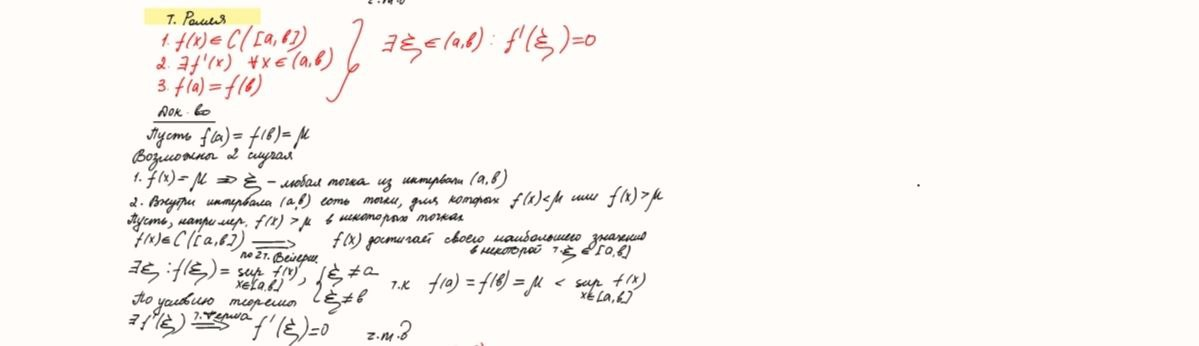 ч.т.д
т. Ролля
1. f(x) ∈ C([a,b])
2. ∃f'(x) ∀x∈(a,b)
3. f(a) = f(b)
∃ξ∈(a,b) : f'(ξ)=0
Док-во
Пусть f(a) = f(b) = μ
Возможны 2 случая
1. f(x) = μ ⇒ ξ - любая точка из интервала (a,b)
2. Внутри интервала (a,b) есть точки, для которых f(x)<μ или f(x)>μ
Пусть, например, f(x) > μ в некоторых точках
f(x)∈C([a,b]) ⟹ по 2 т. Вейерш f(x) достигает своего наибольшего значения
в некоторой т. ξ ∈ [a,b]
∃ξ : f(ξ) = sup f(x), x∈[a,b] { ξ ≠ a ξ ≠ b т.к f(a) = f(b) = μ < sup f(x) x∈[a,b]
По условию теоремы
∃f'(ξ) т. Ферма ⟹ f'(ξ)=0 ч.т.д